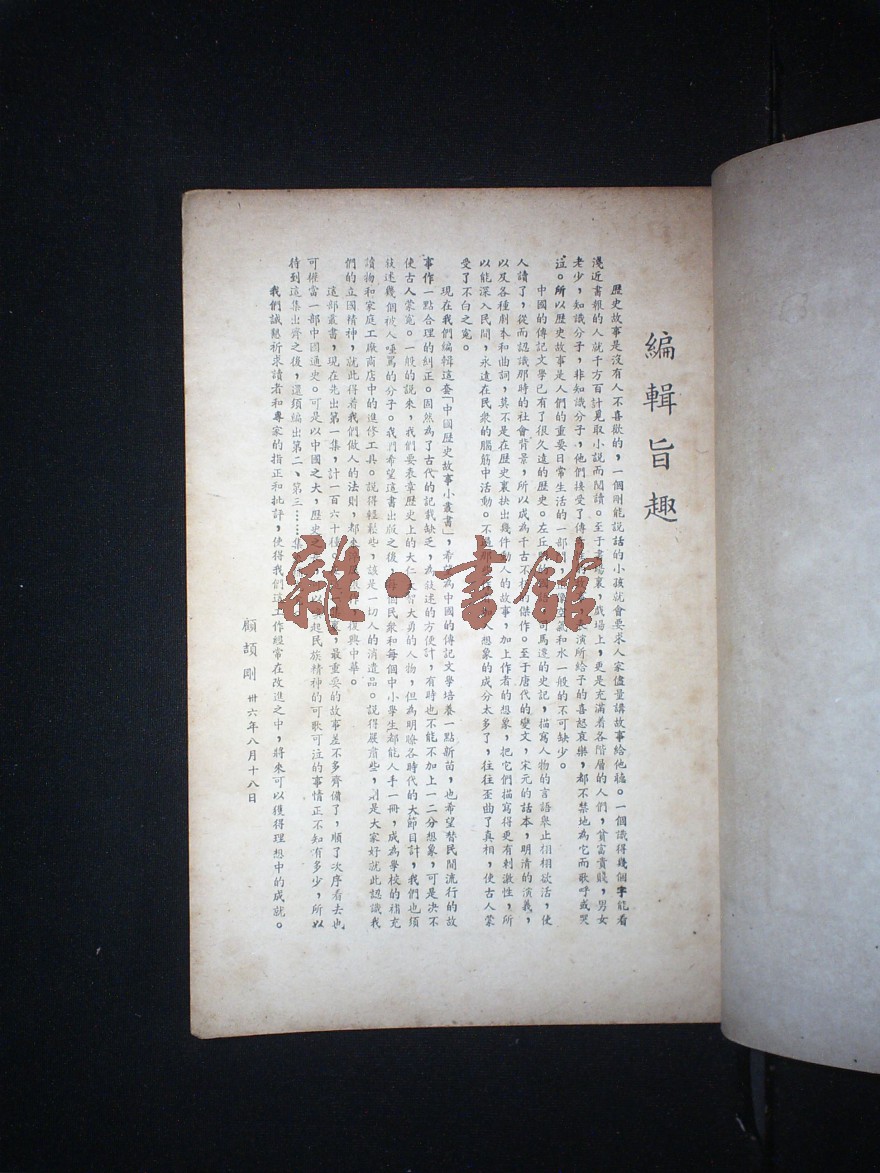 編輯旨趣
歷史故事是沒有人不喜歡的，一個剛能說話的小孩就會要求人家儘量講故事給他聽。一個識得幾個字能看
淺近書報的人就千方百計覓取小說而閱讀。至于書場裏、戲場上，更是充滿着各階層的人們，貧富貴賤，男女
老少，知識分子，非知識分子，他們接受了傳 演所給予的喜怒哀樂，都不禁地為它而歌呼或哭
泣。所以歷史故事是人們的重要日常生活的一部 空氣和水一般的不可缺少。
中國的傳記文學已有了很久遠的歷史。左丘 司馬遷的史記，描寫人物的言語舉止栩栩欲活，使
人讀了，從而認識那時的社會背景，所以成為千古不朽 傑作。至于唐代的變文，宋元的話本，明清的演義，
以及各種劇本和曲詞，莫不是在歷史裏抉出幾件動人的故事，加上作者的想象，把它們描寫得更有刺激性，所
以能深入民間，永遠在民衆的腦筋中活動。不過 想象的成分太多了，往往歪曲了真相，使古人蒙
受了不白之寃。
現在我們編輯這套「中國歷史故事小叢書」，希 為中國的傳記文學培養一點新苗，也希望替民間流行的故
事作一點合理的糾正。固然為了古代的記載缺乏，為敍述的方便計，有時也不能不加上一二分想象，可是决不
使古人蒙寃。一般的說來，我們要表章歷史上的大仁 智大勇的人物，但為明瞭各時代的大節目計，我們也須
敍述幾個被人唾罵的分子。我們希望這書出版之後， 每個民衆和每個中小學生都能人手一冊，成為學校的補充
讀物和家庭工廠商店中的進修工具。說得輕鬆些，該是一切人的消遣品。說得嚴肅些，則是大家好就此認識我
們的立國精神，就此得着我們做人的法則，都來 復興中華。
這部叢書，現在先出第一集，計一百六十種 最重要的故事差不多齊備了，順了次序看去也
可權當一部中國通史。可是以中國之大，歷史之 以興起民族精神的可歌可泣的事情正不知有多少，所以
待到這集出齊之後，還須編出第二、第三……集
我們誠懇祈求讀者和專家的指正和批評，使得我們這工作經常在改進之中，將來可以獲得理想中的成就。
顧頡剛 卅六年八月十八日
雜·書館